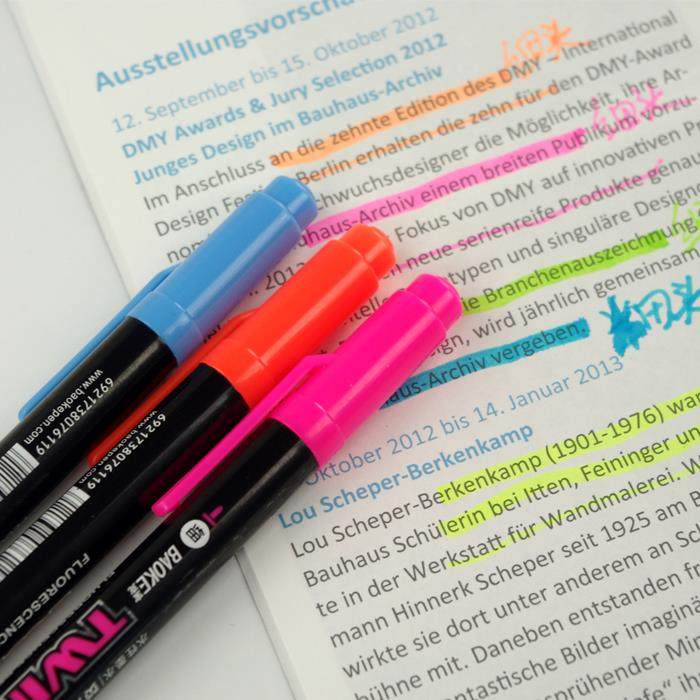 Ausstellungsvorscha
12. September bis 15. Oktober 2012
DMY Awards & Jury Selection 2012
Junges Design im Bauhaus-Archiv
Im Anschluss an die zehnte Edition des DMY – International
Design Festi Berlin erhalten die zehn für den DMY-Award
nom chwuchsdesigner die Möglichkeit, ihre Ar-
uhaus-Archiv einem breiten Publikum vorzu-
2012 Fokus von DMY auf innovativen
n neue serienreife Produkte genau
typen und singuläre Design
ie Branchenauszeichnung
ign, wird jährlich gemeinsam
aus-Archiv vergeben.
Oktober 2012 bis 14. Januar 2013
Lou Scheper-Berkenkamp
Lou Scheper-Berkenkamp (1901-1976) war
Bauhaus Schülerin bei Itten, Feininger un
te in der Werkstatt für Wandmalerei. W
mann Hinnerk Scheper seit 1925 am
wirkte sie dort unter anderem an Sc
bühne mit. Daneben entstanden fr
antastische Bilder imagin
ühender M
www.baokepen.com
6921738076119
www.baokepen.com
6921738076119
FLUORESCENC
BAOKE
细
TWI